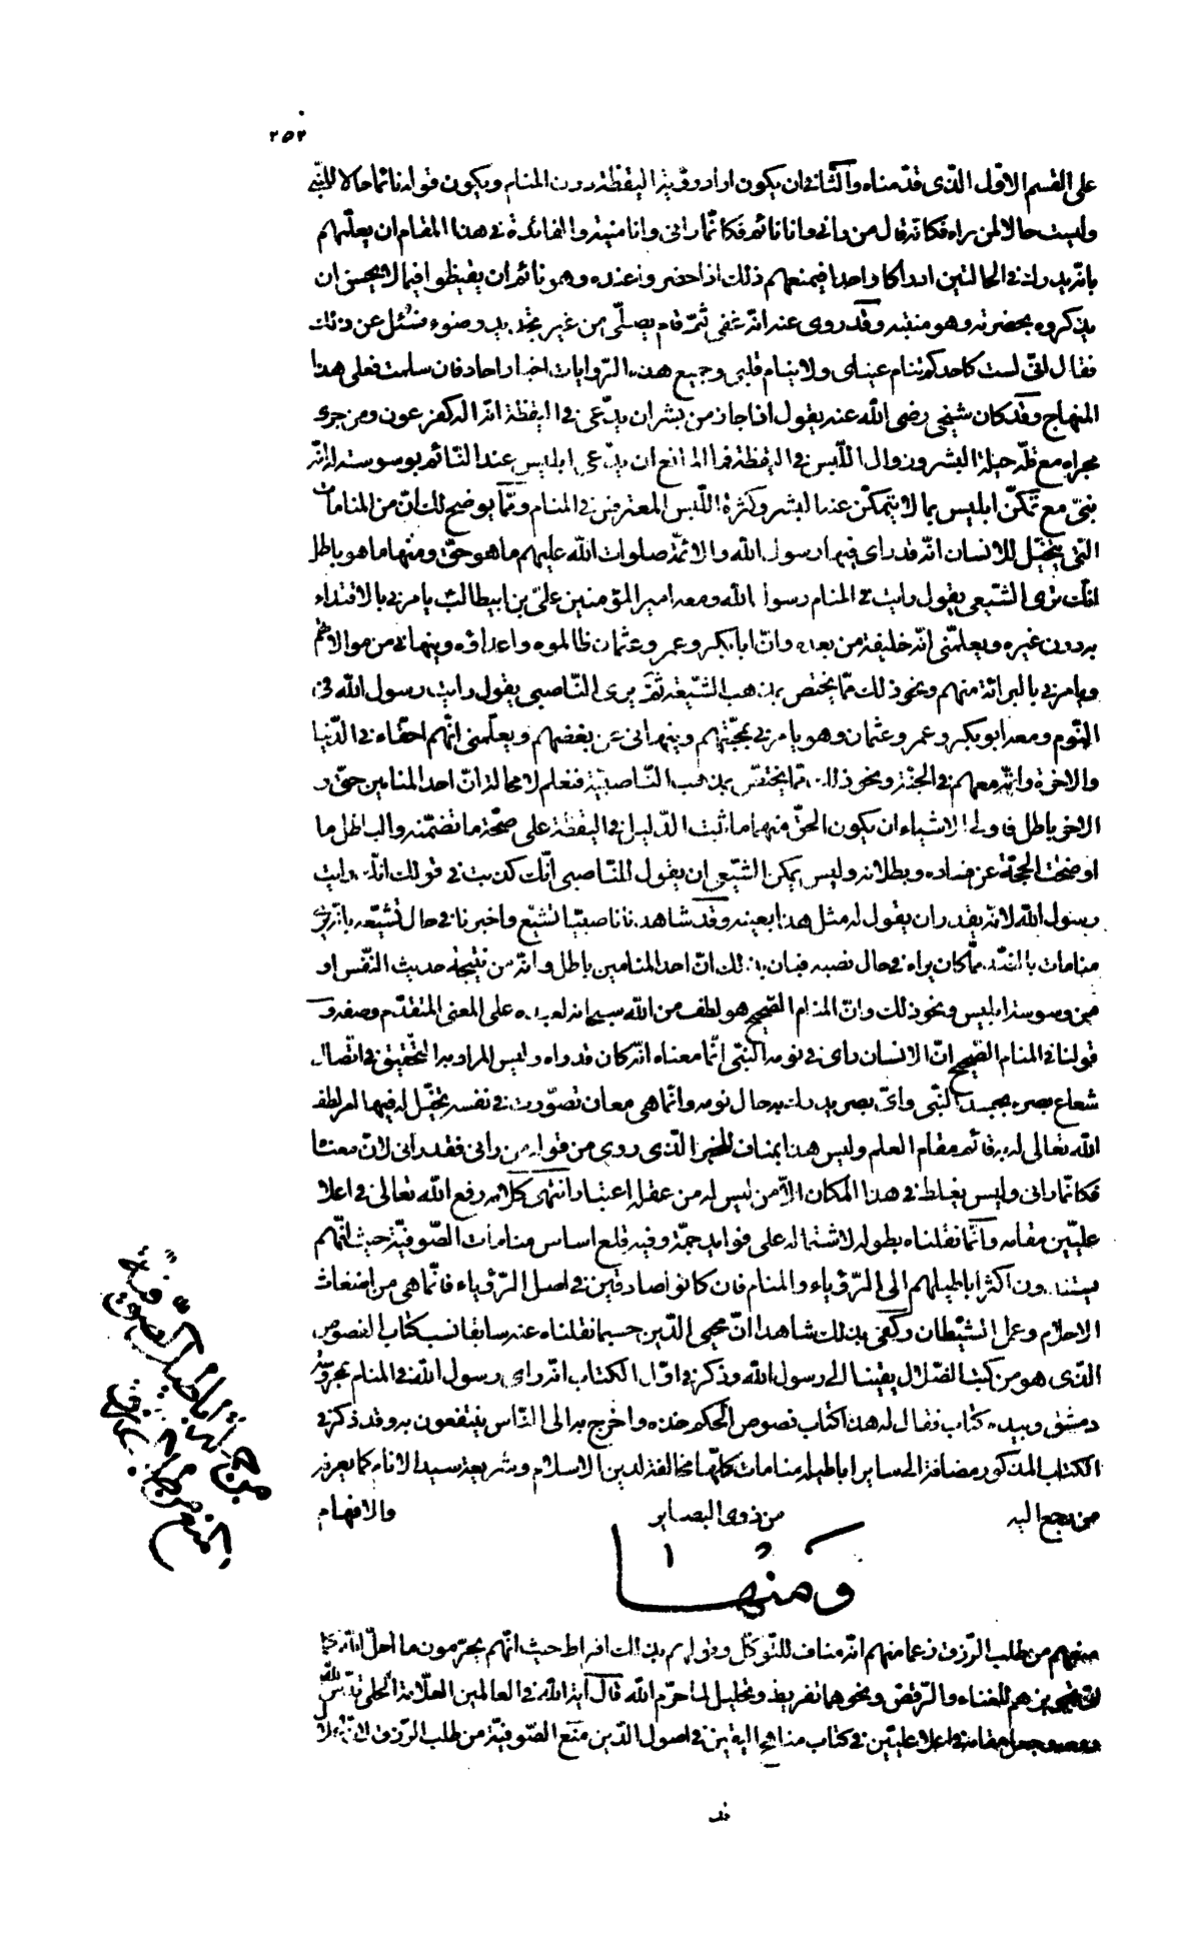 ٢٥٣
على القسم الاوّل الذى قدّمناه والثانى ان يكون اراد رؤية اليقظة دون المنام ويكون قوله نائما حالا للنبى
وليست حالا لمن يراه فكانّه قال من رانى وانا نائم فكانّما رانى وانا منتبه والفائدة فى هذا المقام ان يعلّمهم
بانّه يدرك فى الحالتين ادراكا واحدا فيمنعهم ذلك اذا حضروا عنده وهو نائم ان يفيضوا فيما لا يحسن ان
يذكروه بحضرته وهو منتبه وقد روى عنه انّه غفى ثمّ قام يصلّى من غير تجديد وضوء فسئل عن ذلك
فقال انّى لست كاحدكم تنام عيناى ولا ينام قلبى وجميع هذه الرّوايات اخبار احاد فان سلمت فعلى هذا
المنهاج وقد كان شيخى رضى الله عنه يقول اذا جاز من بشر ان يدّعى فى اليقظة انّه اله كفرعون ومن جرى
مجراه مع قلّة حيلة البشر وزوال اللّبس فى اليقظة فما المانع ان يدّعى ابليس عند النّائم بوسوسته له انّه
نبىّ مع تمكّن ابليس بما لا يتمكّن عنه البشر وكثرة اللّبس المعترض فى المنام وممّا يوضح لك انّ من المنامات
التى يتخيّل للانسان انّه قد راى فيها رسول الله والائمّة صلوات الله عليهم ما هو حقّ ومنها ما هو باطل
انّك ترى الشّيعى يقول رايت فى المنام رسول الله ومعه امير المؤمنين علىّ بن ابيطالب يامرنى بالاقتداء
به دون غيره ويعلّمنى انّه خليفته من بعده وانّ ابا بكر وعمر وعثمان ظالموه واعداؤه وينهانى من موالاتهم
ويامرنى بالبرائة منهم ونحو ذلك ممّا يختص بمذهب الشّيعة ثمّ يرى النّاصبى يقول رايت رسول الله فى
النّوم ومعه ابو بكر وعمر وعثمان وهو يامرنى بمحبّتهم وينهانى عن بغضهم ويعلّمنى انّهم اصحابه فى الدّنيا
والاخرة وانّهم معه فى الجنّة ونحو ذلك ممّا يختصّ بمذهب النّاصبيّة فنعلم لا محالة انّ احد المنامين حقّ و
الاخر باطل فاولى الاشياء ان يكون الحقّ منهما ما ثبت الدّليل فى اليقظة على صحّة ما تضمّنه والباطل ما
اوضحت الحجّة عن فساده وبطلانه وليس يمكن الشّيعى ان يقول للنّاصبى انّك كذبت فى قولك انّك رايت
رسول الله لانّه يقدر ان يقول له مثل هذا بعينه وقد شاهدنا ناصبيّا تشيّع واخبرنا فى حال تشيّعه بانّه يرى
منامات بالضّد ممّا كان يراه فى حال نصبه فبان بذلك انّ احد المنامين باطل وانّه من نتيجة حديث النّفس او
من وسوسة ابليس ونحو ذلك وانّ المنام الصّحيح هو لطف من الله سبحانه لعبده على المعنى المتقدّم وصفه و
قولنا فى المنام الصّحيح انّ الانسان راى فى نومه النّبى انّما معناه انّه كان قد راه وليس المراد به التحقيق فى اتّصال
شعاع بصره بجسد النّبى واىّ بصر يدرك به حال نومه وانّما هى معان تصوّرت فى نفسه تخيّل له فيها امر لطف
الله تعالى له به قائم مقام العلم وليس هذا بمناف للخبر الّذى روى من قوله من رانى فقد رانى لانّ معناه
فكانّما رانى وليس يغلط فى هذا المكان الاّ من ليس له من عقله اعتبار انتهى كلامه رفع الله تعالى فى اعلا
عليّين مقامه وانّما نقلناه بطوله لاشتماله على فوايد جمّة وفيه قلع اساس منامات الصّوفيّة حيث انّهم
يستندون اكثر اباطيلهم الى الرّؤياء والمنام فان كانوا صادقين فى اصل الرّؤياء فانّما هى من اضغاث
الاحلام وعمل الشّيطان وكفى بذلك شاهدا انّ محيى الدّين حسبما نقلناه عنه سابقا نسب كتاب الفصوص
الذى هو من كتب الضّلال يقينا الى رسول الله وذكر فى اوّل الكتاب انّه راى رسول الله فى المنام بمحروسة
دمشق وبيده كتاب فقال له هذا كتاب فصوص الحكم خذه واخرج به الى النّاس ينتفعون به وقد ذكر فى
الكتاب المذكور مضافة الى ساير اباطيله منامات كلّها مخالفة لدين الاسلام وشريعة سيد الانام كما يعرفه
من رجع اليه من ذوى البصاير والافهام
ومنها
منعهم من طلب الرّزق زعما منهم انّه مناف للتّوكّل وقولهم بذلك افراط حيث انّهم يحرّمون ما احلّ الله كما
انّ تجويزهم للغناء والرّقص ونحوهما تفريط وتحليل لما حرّم الله قال اية الله فى العالمين العلاّمة الحلى قدّس الله
روحه وجعل مقامه فى اعلا عليّين فى كتاب مناهج اليقين فى اصول الدّين منع الصّوفيّة من طلب الرّزق
من جملة اباطيل الصّوفيّة
منعهم من طلب الرزق